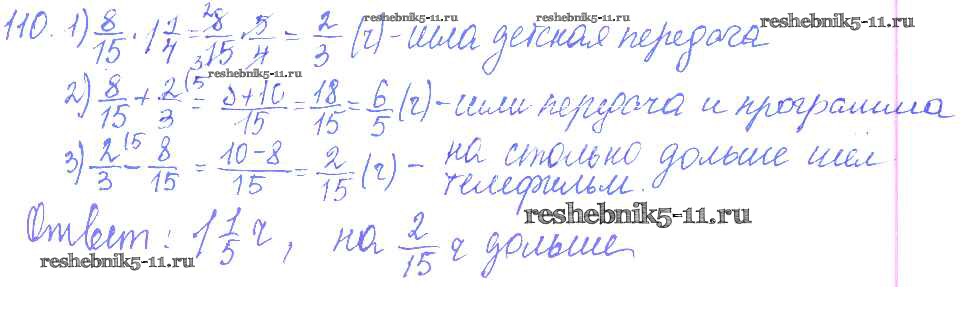 110. 1) 8/15 · 1 1/4 = 8/15 · 5/4 = 2/3 (ч) - шла детская передача
reshebnik5-11.ru reshebnik5-11.ru reshebnik5-11.ru
reshebnik5-11.ru
2) 8/15 + 2/3 (5 = 8+10/15 = 18/15 = 6/5 (ч) - шли передача и программа
3) 2/3 (5 - 8/15 = 10-8/15 = 2/15 (ч) - на столько дольше шёл
телефильм.
reshebnik5-11.ru
Ответ: 1 1/5 ч, на 2/15 ч дольше
reshebnik5-11.ru